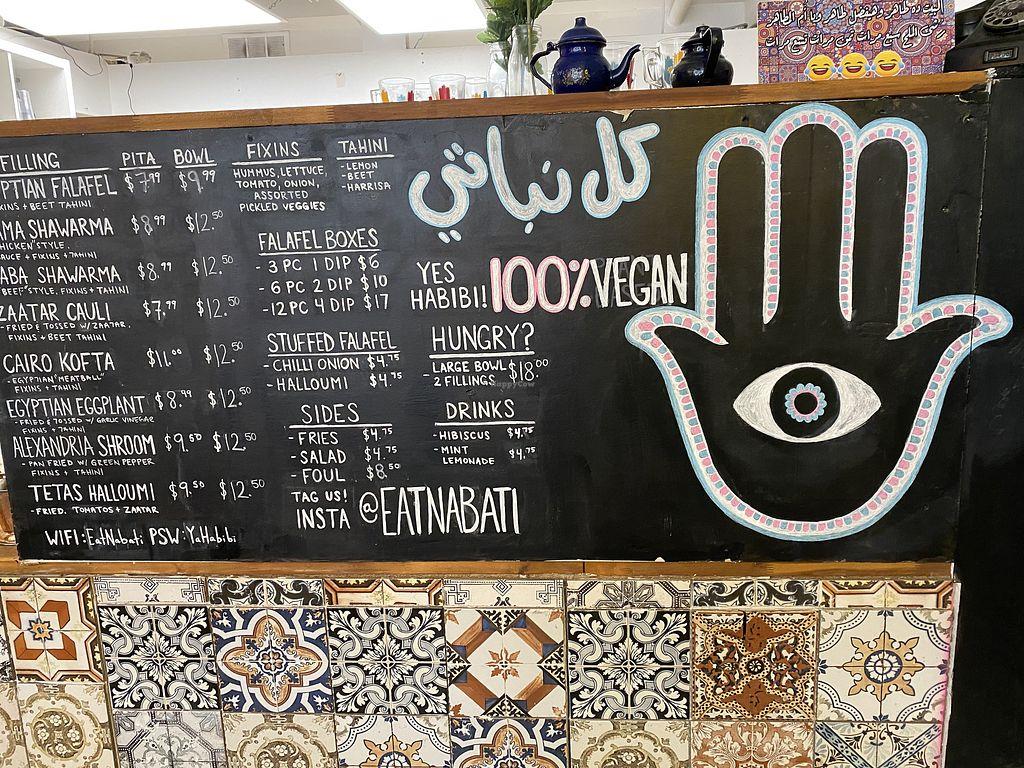 FILLING PITA BOWL
PTIAN FALAFEL $7.99 $9.99
XINS + BEET TAHINI
MA SHAWARMA $8.99 $12.50
HICKEN STYLE.
AUCE + FIXINS + TAHINI
ABA SHAWARMA $8.99 $12.50
BEEF STYLE. FIXINS + TAHINI
ZAATAR CAULI $7.99 $12.50
-FRIED & TOSSED W/ ZAATAR.
FIXINS + BEET TAHINI
CAIRO KOFTA $11.00 $12.50
-EGYPTIAN "MEATBALL"
FIXINS + TAHINI
EGYPTIAN EGGPLANT $8.99 $12.50
-FRIED & TOSSED W/ GARLIC VINEGAR
FIXINS + TAHINI
ALEXANDRIA SHROOM $9.50 $12.50
- PAN FRIED W/ GREEN PEPPER
FIXINS + TAHINI
TETAS HALLOUMI $9.50 $12.50
-FRIED. TOMATOS + ZAATAR
WIFI: EatNabati PSW: YaHabibi
FIXINS
HUMMUS, LETTUCE,
TOMATO, ONION,
ASSORTED
PICKLED VEGGIES
TAHINI
-LEMON
-BEET
-HARRISA
FALAFEL BOXES
- 3 PC 1 DIP $6
- 6 PC 2 DIP $10
-12 PC 4 DIP $17
STUFFED FALAFEL
- CHILLI ONION $4.75
- HALLOUMI $4.75
SIDES
- FRIES $4.75
- SALAD $4.75
- FOUL $8.50
TAG US!
INSTA @EATNABATI
كل نباتي
YES
HABIBI! 100% VEGAN
HUNGRY?
- LARGE BOWL $18.00
2 FILLINGS
HappyCow
DRINKS
-HIBISCUS $4.75
-MINT
LEMONADE $4.75
البيت ده طاهر وهيفضل طاهر